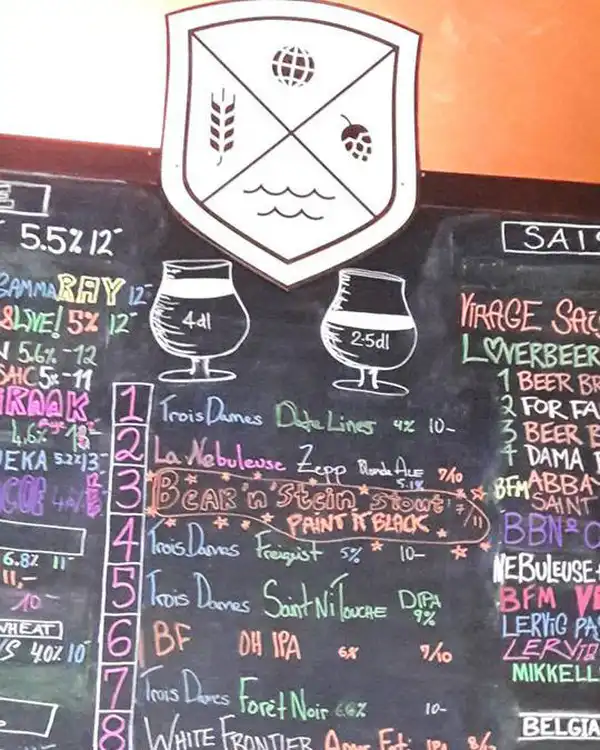 5.5% 12-
4dl
2.5dl
GAMMA RAY 12-
LIVE! 5% 12-
5.6% -12
5% -11
5.2% 13-
6.8% 11-
11,-
10-
WHEAT
4.0% 10-
1 Trois Dames Date Lines 4% 10-
2 La Nebuleuse Zepp Blonde Ale 5.1% 7/10
3 Bear 'n' Stein stout 7/11
PAINT IT BLACK
4 Trois Dames Freigist 5% 10-
5 Trois Dames Saint Ni Touche DIPA 9%
6 BF OH IPA 6% 7/10
7 Trois Dames Forêt Noir 6.6% 10-
8 WHITE FRONTIER IPA 8/
SAIS
VIRAGE SAIS
LOVERBEER
1 BEER BR
2 FOR FA
3 BEER B
4 DAMA
BFM ABBA
SAINT
BBNº
NEBULEUSE
BFM
LERVIG PA
LERVIG
MIKKELL
BELGIA